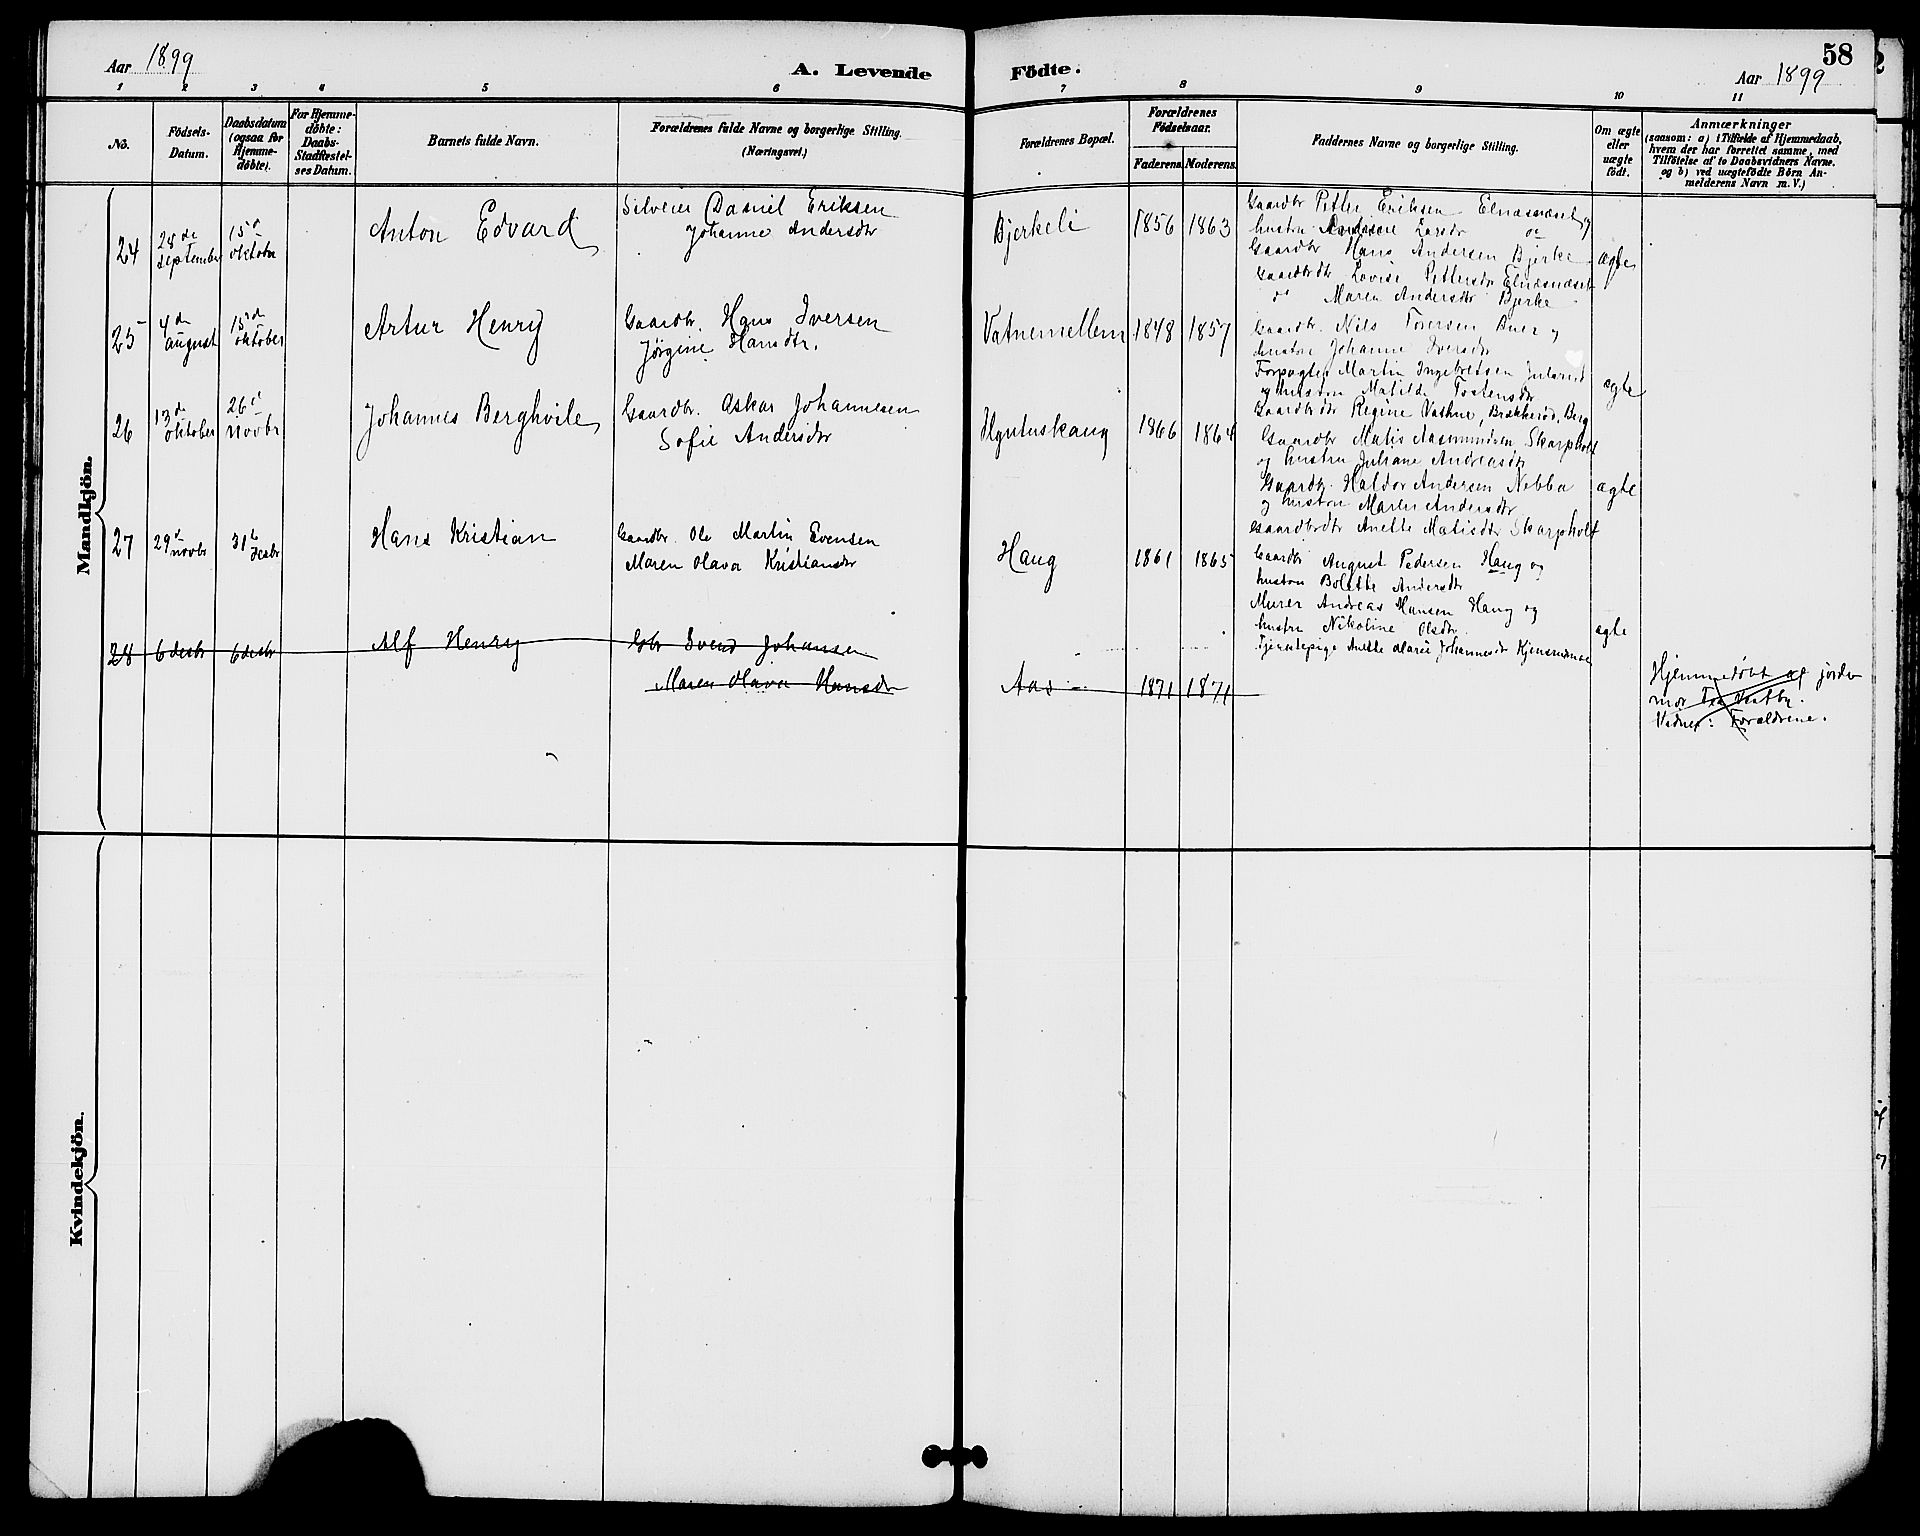 Aar 1899
A. Levende
Födte.
58
Aar 1899
1 2 3 4 5 6 7 8 9 10 11
No.
Födsels-
Datum.
Daabsdatum
(ogsaa for
Hjemme-
döbte).
For Hjemme-
döbte:
Daabs-
Stadfæstel-
ses Datum.
Barnets fulde Navn.
Forældrenes fulde Navne og borgerlige Stilling.
(Næringsvei.)
Forældrenes Bopæl.
Forældrenes
Födselsaar.
Faderens. Moderens.
Faddernes Navne og borgerlige Stilling.
Om ægte
eller
uægte
födt.
Anmærkninger
(saasom: a) i Tilfælde af Hjemmedaab,
hvem der har forrettet samme, med
Tilföielse af to Daabsvidners Navne.
og b) ved uægtefödte Börn An-
melderens Navn m. V.)
Mandkjön.
24
28de
september
15d
oktober
Anton Edvard
Daniel Eriksen
Johanne Andersdtr
Bjerkeli
1856 1863
Gaardbr Petter Eriksen Elnæsnæset og
hustru Larsdtr
Gaardbr Hans Andersen Bjerke
Gaardbrdtr Lovise Pettersdtr Elnæsnæset
do Maren Andersdtr Bjerke
ægte
25
4de
august
15d
oktober
Artur Henry
Gaardbr. Hans Iversen
Jørgine Hansdtr.
Vatnemellem
1848 1857
Gaardbr. Nils og
hustru Johanne Iversdtr
Forpagter Martin Ingebretsen
og hustru Matilde Tostensdtr
Gaardbrdtr Regine
ægte
26
13de
oktober
26d
novbr
Johannes Berghvile
Gaardbr. Oskar Johannesen
Sofie Andersdtr
1866 1864
Gaardbr Matis Aasmundsen Skarpholt
og hustru Juliane Andreasdtr
Gaardbr. Haldor Andersen Nebba
og hustru Maren Andersdtr
Gaardbrdtr Anette Matisdtr Skarpholt
ægte
27
29d
novbr
31te
desbr
Hans Kristian
Gaardbr. Ole Martin Evensen
Maren Olava Kristiansdtr
Haug
1861 1865
Gaardbr August Pedersen Haug og
hustru Bolette Andersdtr
Murer Andreas Hansen Haug og
hustru Nikoline Olsdtr.
Tjenestepige Anette Marie Johannesdtr
ægte
28
6 desbr
6 desbr
Alf Henry
Gbr Svend Johansen
Maren Olava Hansdtr
Aas
1871 1871
Hjemmedøbt af jorde
mor
Vidner: Forældrene.
Kvindekjön.